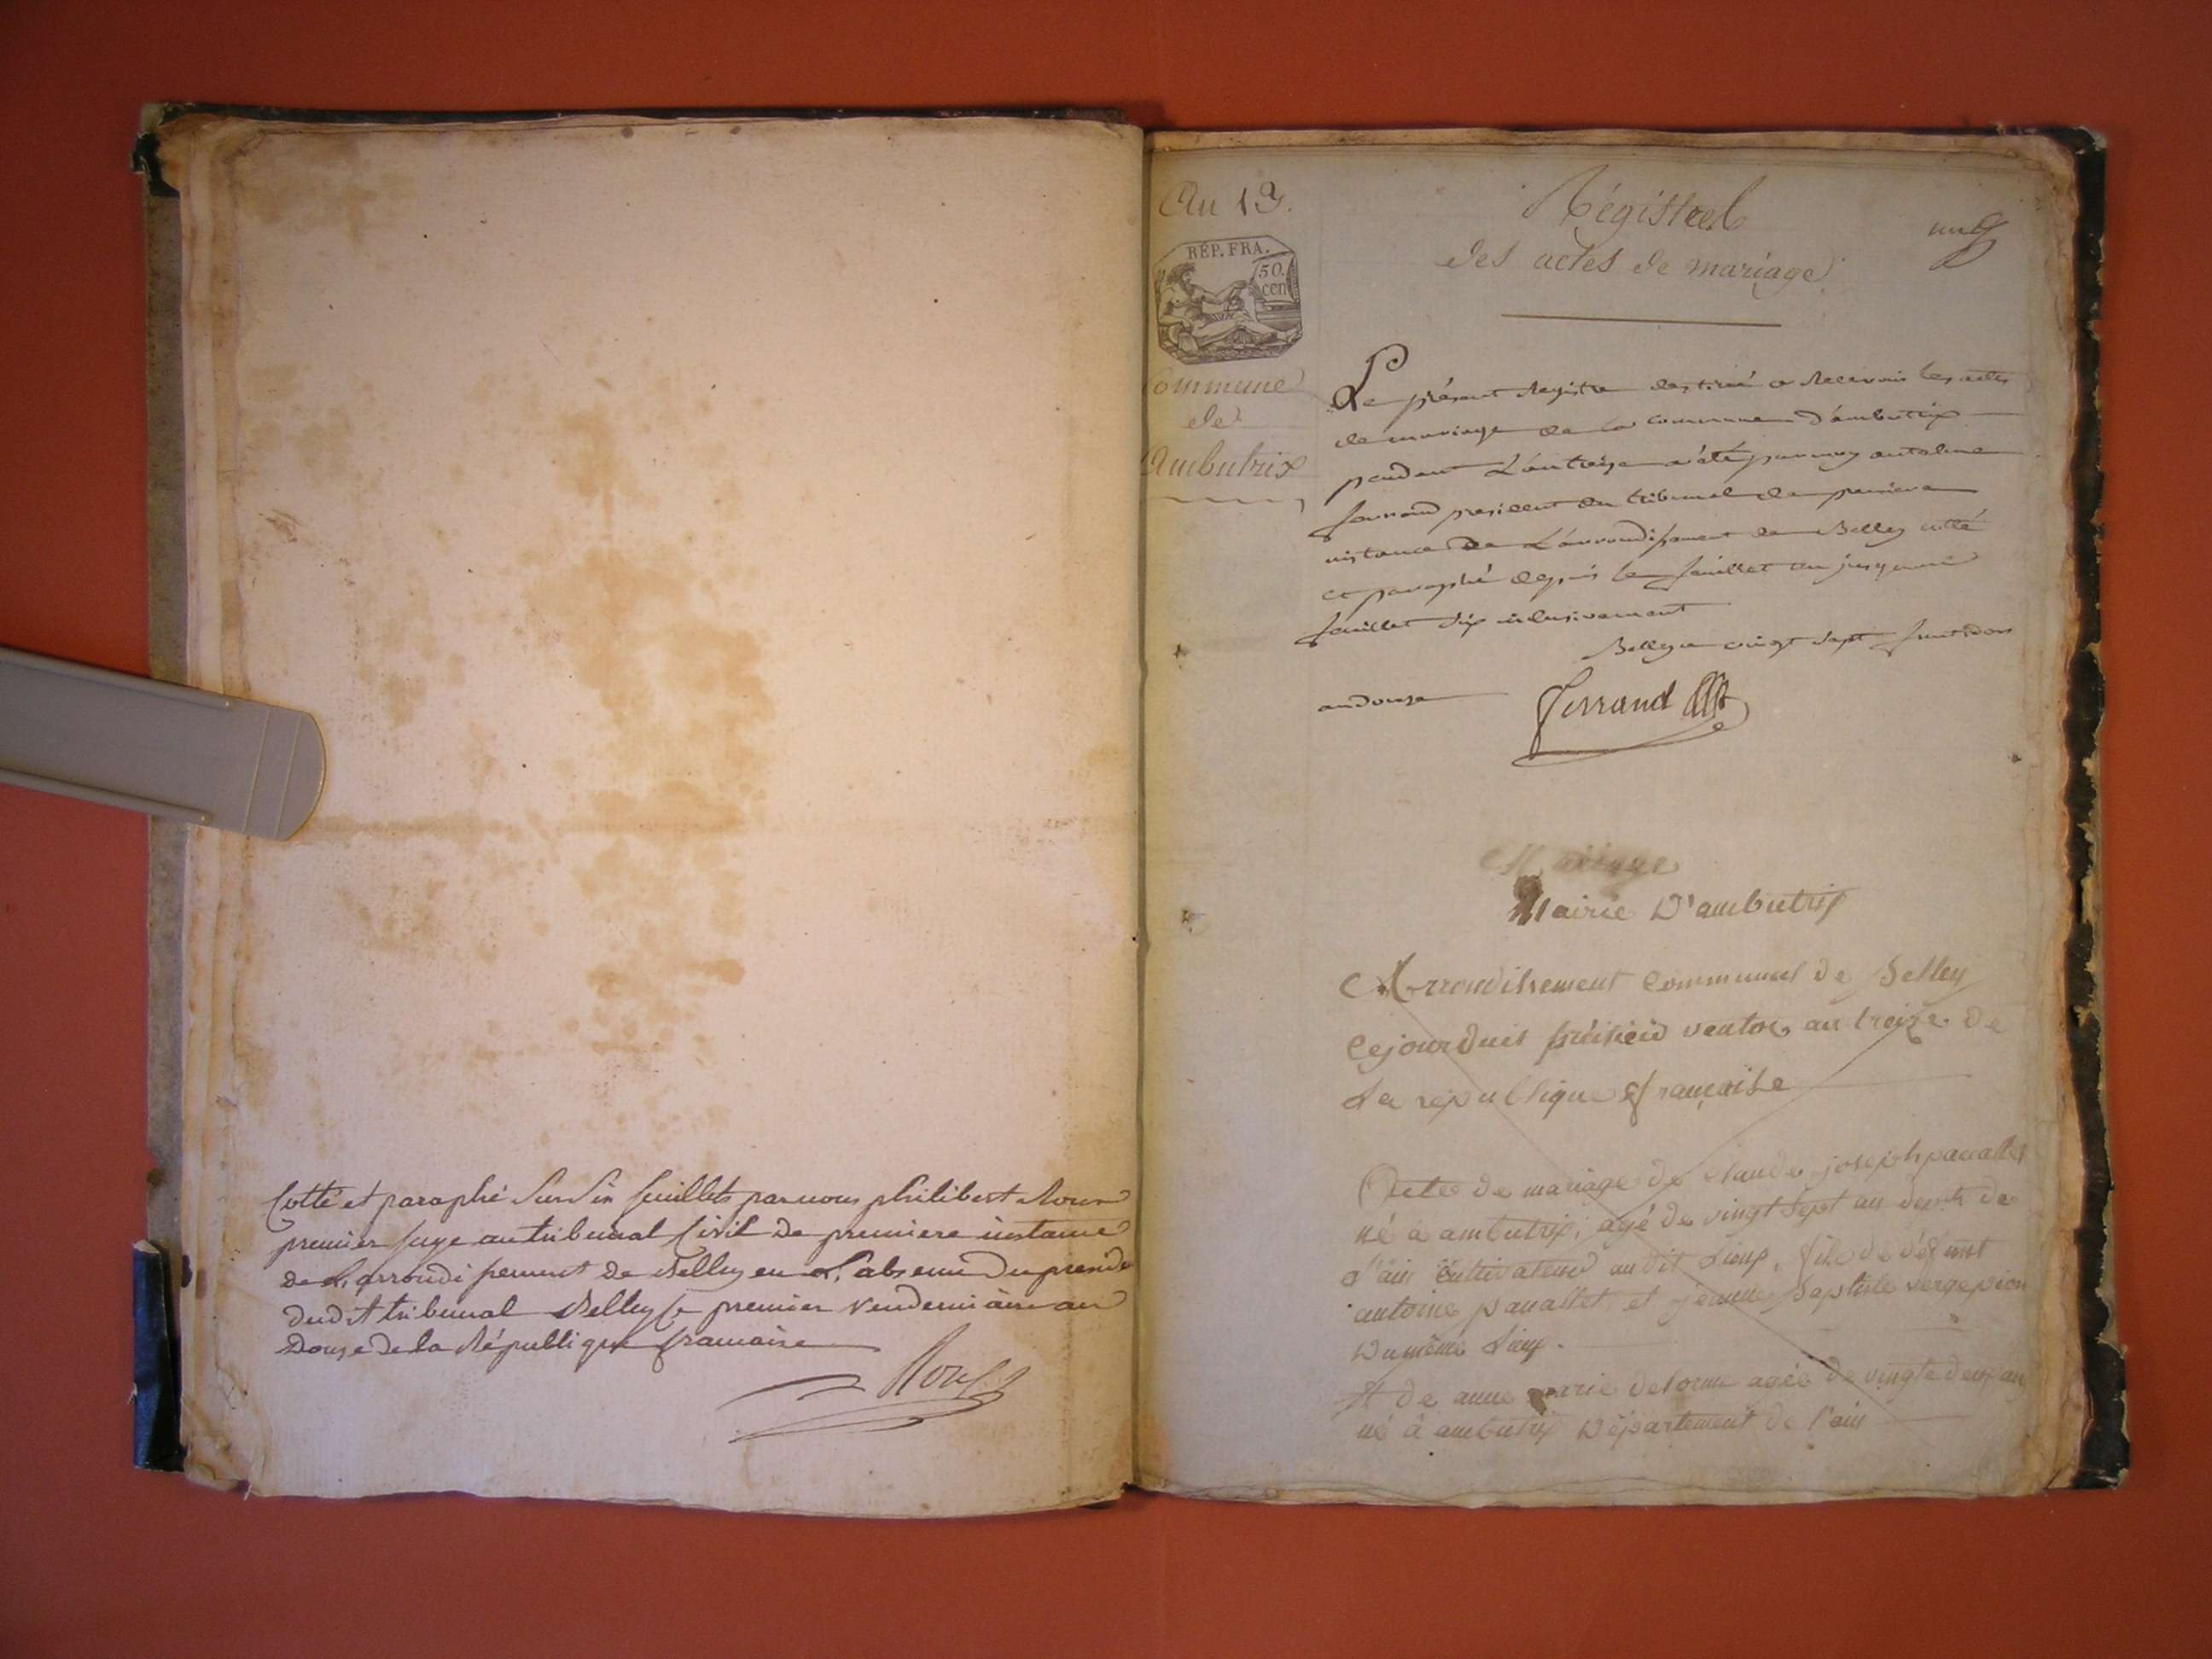 Cotté et paraphé sur six feuillets par nous philibert Roux
premier juge au tribunal Civil de premiere instance
de L'arrondissement de Belley en L'absence du preside
dudit tribunal Belley le premier vendemiaire an
Douze de la République française
Roux
An 13.
RÉP. FRA.
50.
cen
Commune
de
Ambutrix
Régistre
des actes de mariage
un
Le présent Registre destiné a Recevoir les actes
de mariage de la commune d'ambutrix
pendant L'an treize a été par moy antelme
ferrand president du tribunal de premiere
instance de L'arrondissement de Belley cotté
et paraphé depuis le feuillet un jusqu'au
feuillet six inclusivement
Belley le vingt sept fructidor
an douze
Ferrand
Mariage
Mairie D'ambutrix
Arrondissement Communal de Belley
Cejourduis ventose an treize de
La republique française
Acte de mariage de claude joseph panallet
né à ambutrix, agé de vingt sept an depte de
l'ain cultivateur audit Lieux, fils de défunt
antoine panallet et jeanne Baptiste vergepion
Du même Lieux.
Et de anne marie delorme agée de vingte deux an
né à ambutrix Département de l'ain